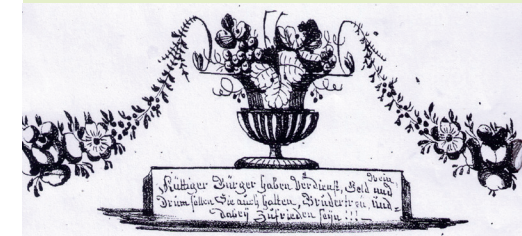 Wein,
Rüttiger Bürger haben Verdienst, Geld und
Drum sollen Sie auch halten, Brüdertreu und
dabey Zufrieden seyn !!!